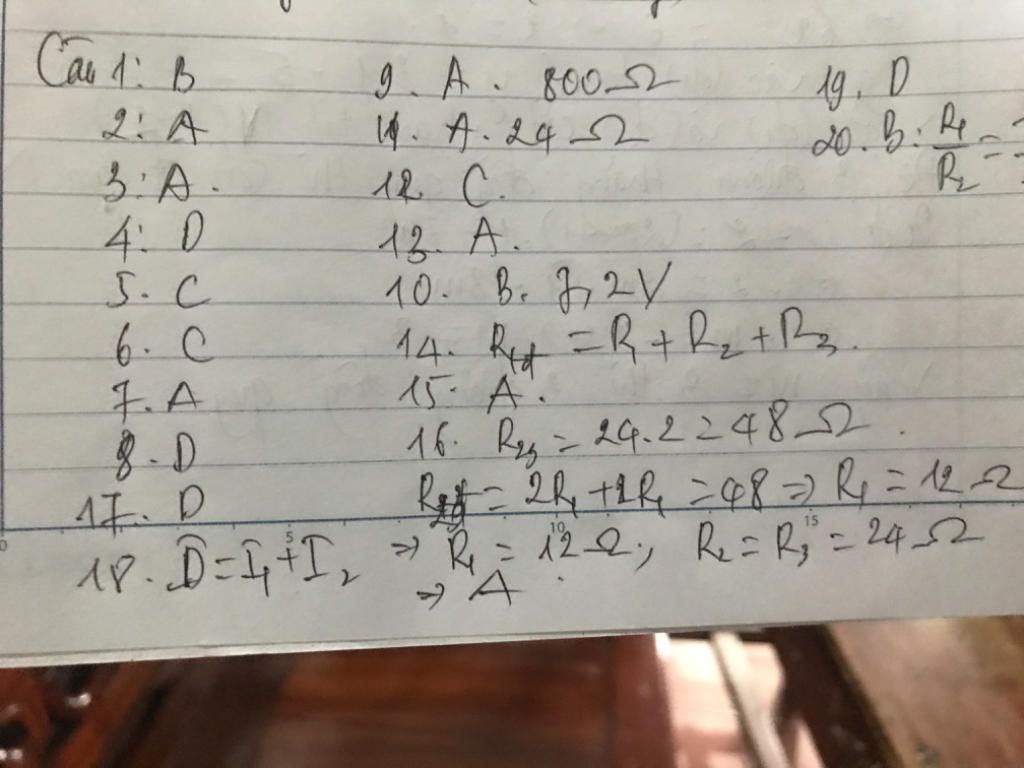 Câu 1: B
2: A
3: A.
4: D
5. C
6. C
7. A
8. D
17. D
18. I = I1 + I2
9. A. 800Ω
11. A. 24 Ω
12. C.
13. A.
10. B. 7,2V
14. Rtđ = R1 + R2 + R3.
15. A.
16. R23 = 24.2 = 48 Ω.
= 2R1 + 2R1 = 48 => R1 = 12 Ω
=> R1 = 12 Ω; R2 = R3 = 24 Ω
=> A
19. D
20. B: R1/R2 =
0 5 10 15